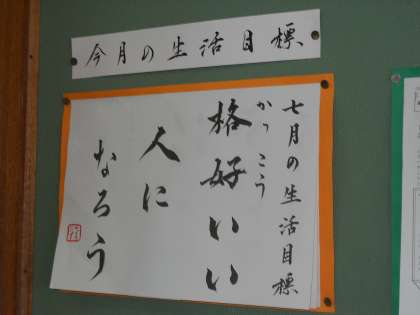 今月の生活目標
七月の生活目標
かっこう
格好いい
人に
なろう